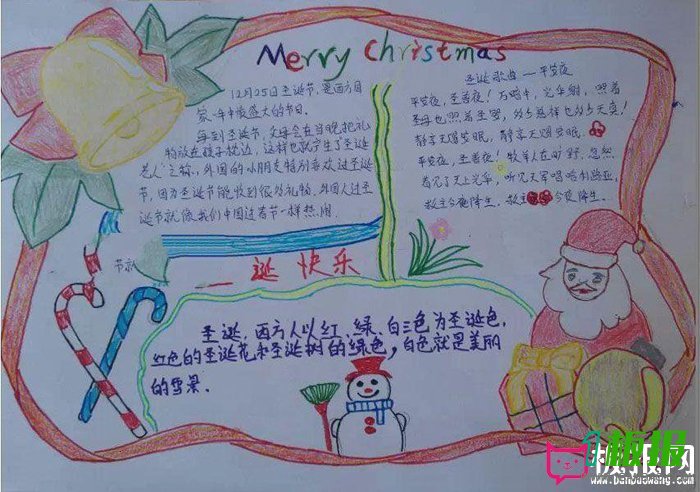 Merry Christmas
12月25日圣诞节,是西方国
家一年中最盛大的节日.
每到圣诞节,父母会在当晚把礼
物放在袜子枕边,这样也就产生了圣诞
老人之称,外国的小朋友特别喜欢过圣诞
节,因为圣诞节能收到很多礼物,外国人过圣
诞节就像我们中国过春节一样热闹.
节就
诞快乐
圣诞歌曲——平安夜
平安夜,圣善夜!万暗中,光华射,照着
圣母也照着圣婴,多少慈祥也多少天真!
静享天赐安眠,静享天赐安眠.
平安夜,圣善夜!牧羊人在旷野,忽然
看见了天上光华,听见天军唱哈利路亚,
救主今夜降生,救主今夜降生.
圣诞,西方人以红、绿、白三色为圣诞色,
红色的圣诞花和圣诞树的绿色,白色就是美丽
的雪景.
板报
板报网
www.banbaowang.com